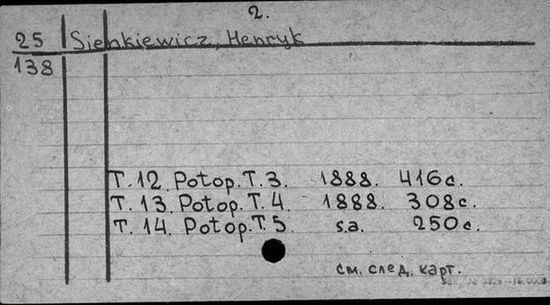 2.
25 Sienkiewicz, Henryk
138
T. 12. Potop. T. 3. 1888. 416 с.
T. 13. Potop. T. 4 1888. 308 с.
T. 14. Potop. T. 5. s.a. 250 с.
см. след. карт.